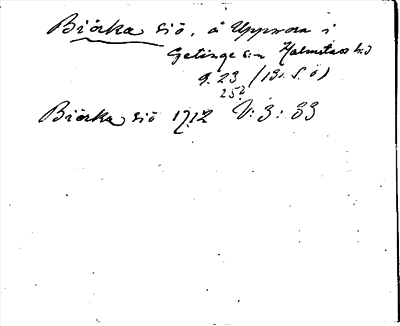 Biörka siö, å Uppsora i
Getinge s:n Halmstads h:d
g. 23 (13. S. ö)
252
Biörka siö 1712 V: 3: 33